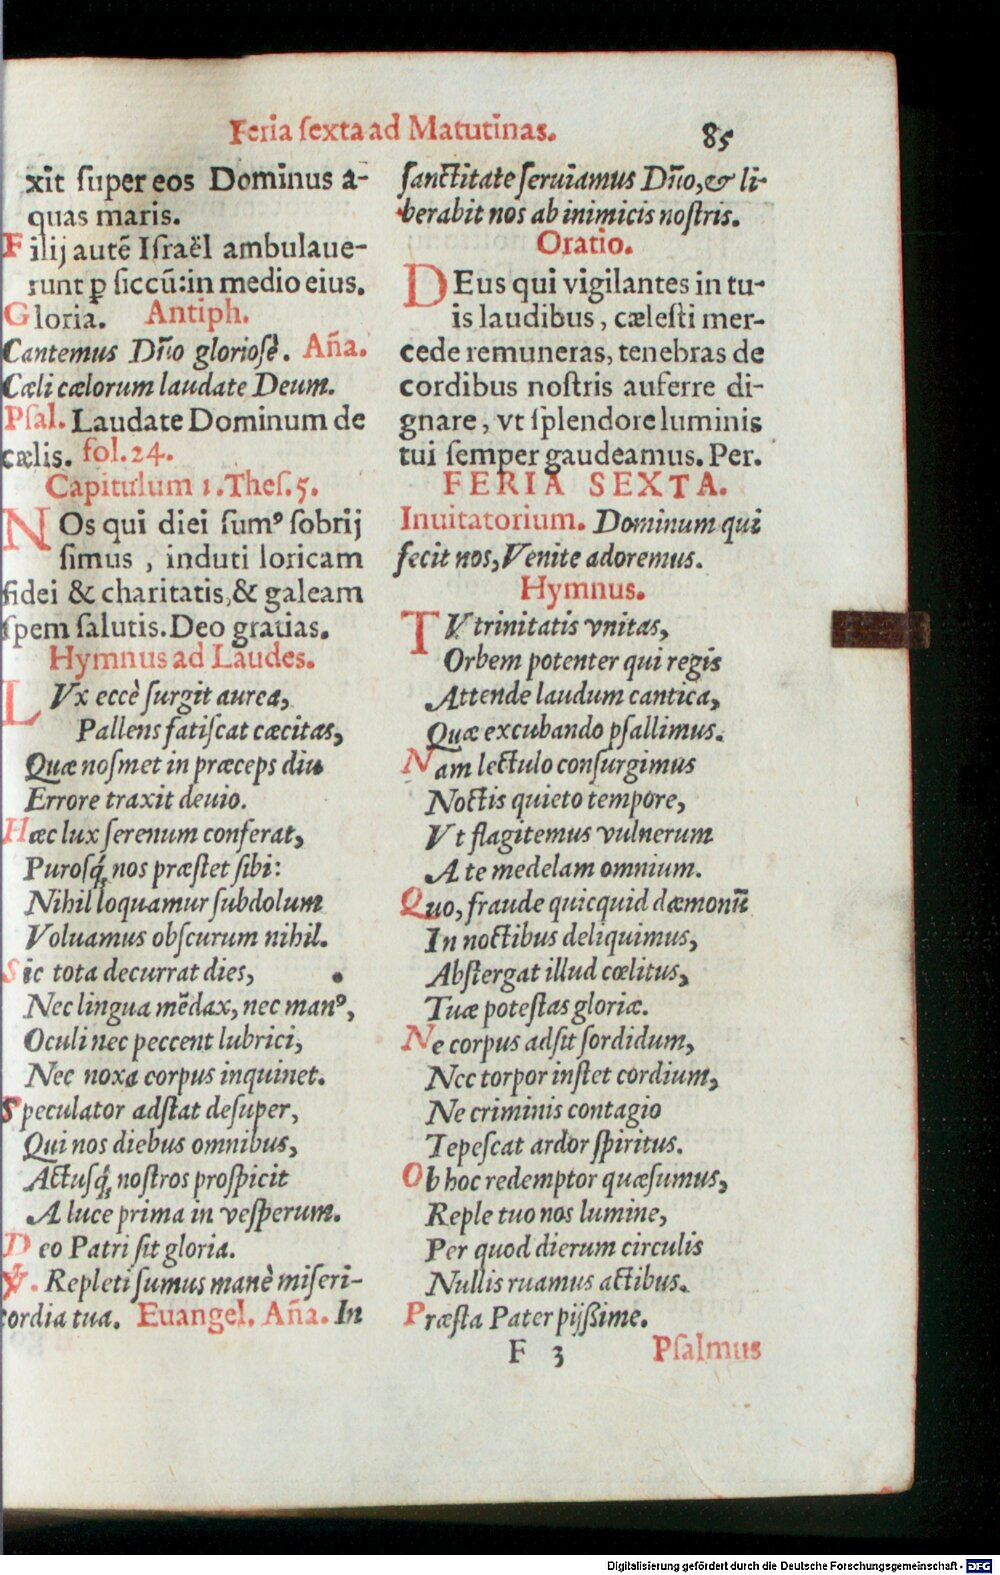 Feria sexta ad Matutinas. 85
xit super eos Dominus a-
quas maris.
Filij autẽ Israël ambulaue-
runt ꝑ siccũ: in medio eius.
Gloria. Antiph.
Cantemus Dño gloriosè. Aña.
Cæli cælorum laudate Deum.
Psal. Laudate Dominum de
cælis. fol. 24.
Capitulum 1. Thes. 5.
NOs qui diei sumꝰ sobrij
simus, induti loricam
fidei & charitatis, & galeam
spem salutis. Deo gratias.
Hymnus ad Laudes.
LVx eccè surgit aurea,
Pallens fatiscat cæcitas,
Quæ nosmet in præceps diu
Errore traxit deuio.
Hæc lux serenum conferat,
Purosq́; nos præstet sibi:
Nihil loquamur subdolum
Voluamus obscurum nihil.
Sic tota decurrat dies,
Nec lingua mẽdax, nec manꝰ,
Oculi nec peccent lubrici,
Nec noxa corpus inquinet.
Speculator adstat desuper,
Qui nos diebus omnibus,
Actusq́; nostros prospicit
A luce prima in vesperum.
Deo Patri sit gloria.
℣. Repleti sumus manè miseri-
cordia tua. Euangel. Aña. In
sanctitate seruiamus Dño, & li-
berabit nos ab inimicis nostris.
Oratio.
DEus qui vigilantes in tu-
is laudibus, cælesti mer-
cede remuneras, tenebras de
cordibus nostris auferre di-
gnare, vt splendore luminis
tui semper gaudeamus. Per.
FERIA SEXTA.
Inuitatorium. Dominum qui
fecit nos, Venite adoremus.
Hymnus.
TV trinitatis vnitas,
Orbem potenter qui regis
Attende laudum cantica,
Quæ excubando psallimus.
Nam lectulo consurgimus
Noctis quieto tempore,
Vt flagitemus vulnerum
A te medelam omnium.
Quo, fraude quicquid dæmonũ
In noctibus deliquimus,
Abstergat illud cœlitus,
Tuæ potestas gloriæ.
Ne corpus adsit sordidum,
Nec torpor instet cordium,
Ne criminis contagio
Tepescat ardor spiritus.
Ob hoc redemptor quæsumus,
Reple tuo nos lumine,
Per quod dierum circulis
Nullis ruamus actibus.
Præsta Pater pijssime.
F 3 Psalmus
Digitalisierung gefördert durch die Deutsche Forschungsgemeinschaft - DFG